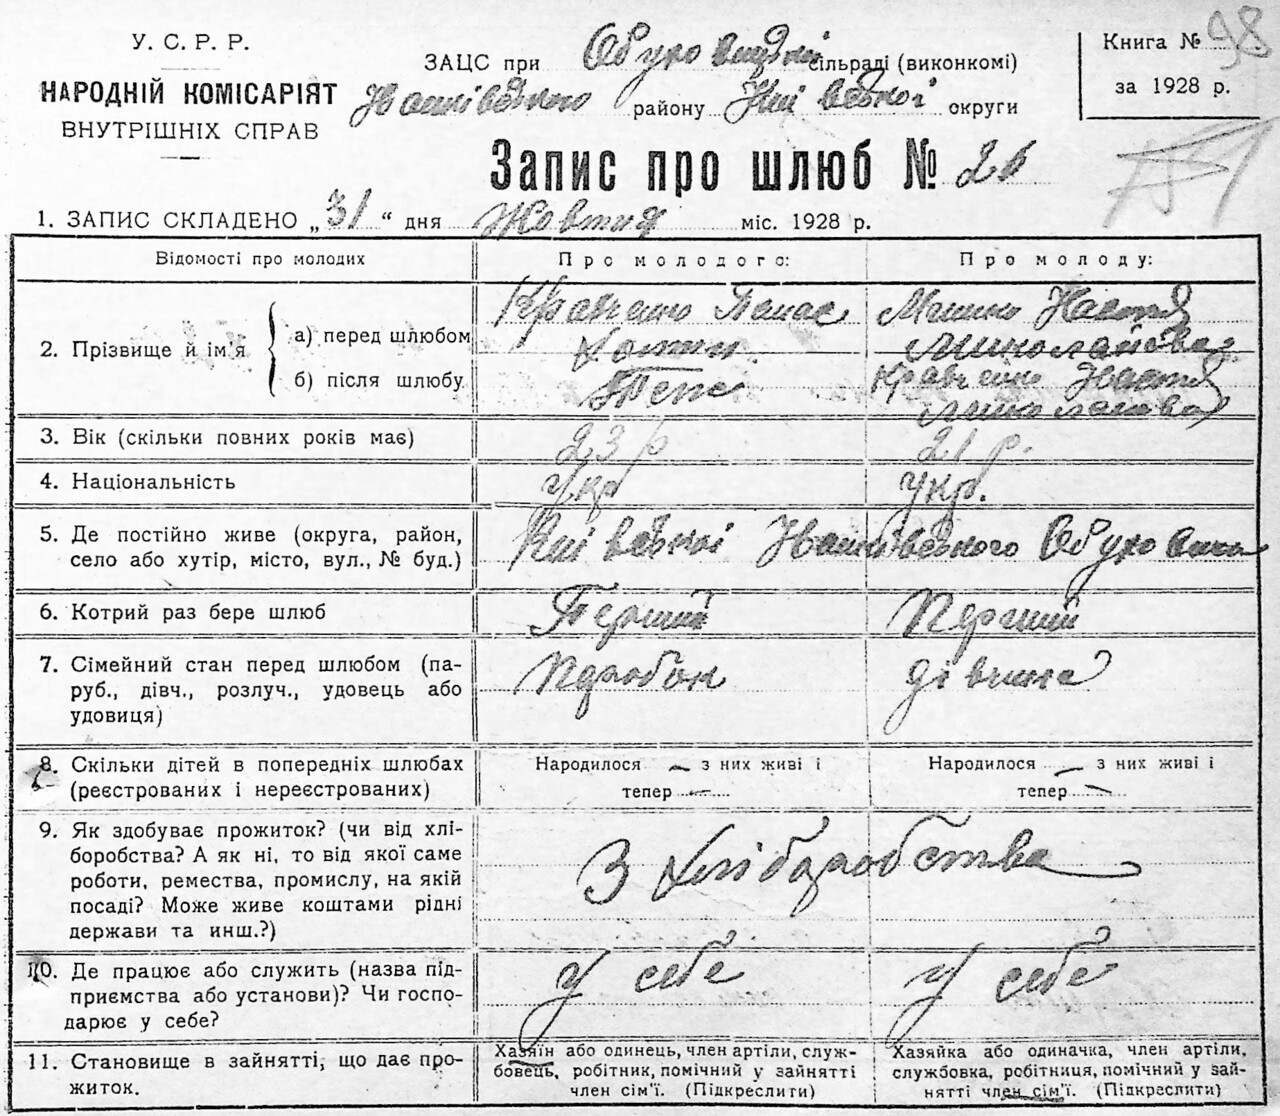 У. С. Р. Р.
НАРОДНІЙ КОМІСАРІЯТ
ВНУТРІШНІХ СПРАВ
ЗАЦС при Обуховицькій сільраді (виконкомі)
Іванківського району Київської округи
Книга № 98
за 1928 р.
Запис про шлюб №
1. ЗАПИС СКЛАДЕНО „31“ дня Жовтня міс. 1928 р.
Відомості про молодих Про молодого: Про молоду:
2. Прізвище й ім'я
а) перед шлюбом
б) після шлюбу
Кравченко Панас
Теж
Настя
Миколаївна
Кравченко Настя
Миколаївна
3. Вік (скільки повних років має) 23 р 21 р.
4. Національність Укр Укр.
5. Де постійно живе (округа, район,
село або хутір, місто, вул., № буд.)
Київської Іванківського Обуховичі
6. Котрий раз бере шлюб Перший Перший
7. Сімейний стан перед шлюбом (па-
руб., дівч., розлуч., удовець або
удовиця)
Паробок дівчина
8. Скільки дітей в попередніх шлюбах
(реєстрованих і нереєстрованих)
Народилося — з них живі і
тепер —
Народилося — з них живі і
тепер —
9. Як здобуває прожиток? (чи від хлі-
боробства? А як ні, то від якої саме
роботи, ремества, промислу, на якій
посаді? Може живе коштами рідні
держави та инш.?)
З хліборобства
10. Де працює або служить (назва під-
приємства або установи)? Чи госпо-
дарює у себе?
у себе у себе
11. Становище в зайнятті, що дає про-
житок.
Хазяїн або одинець, член артіли, служ-
бовець, робітник, помічний у зайнятті
член сім'ї. (Підкреслити)
Хазяйка або одиначка, член артіли,
службовка, робітниця, помічний у зай-
нятті член сім'ї. (Підкреслити)